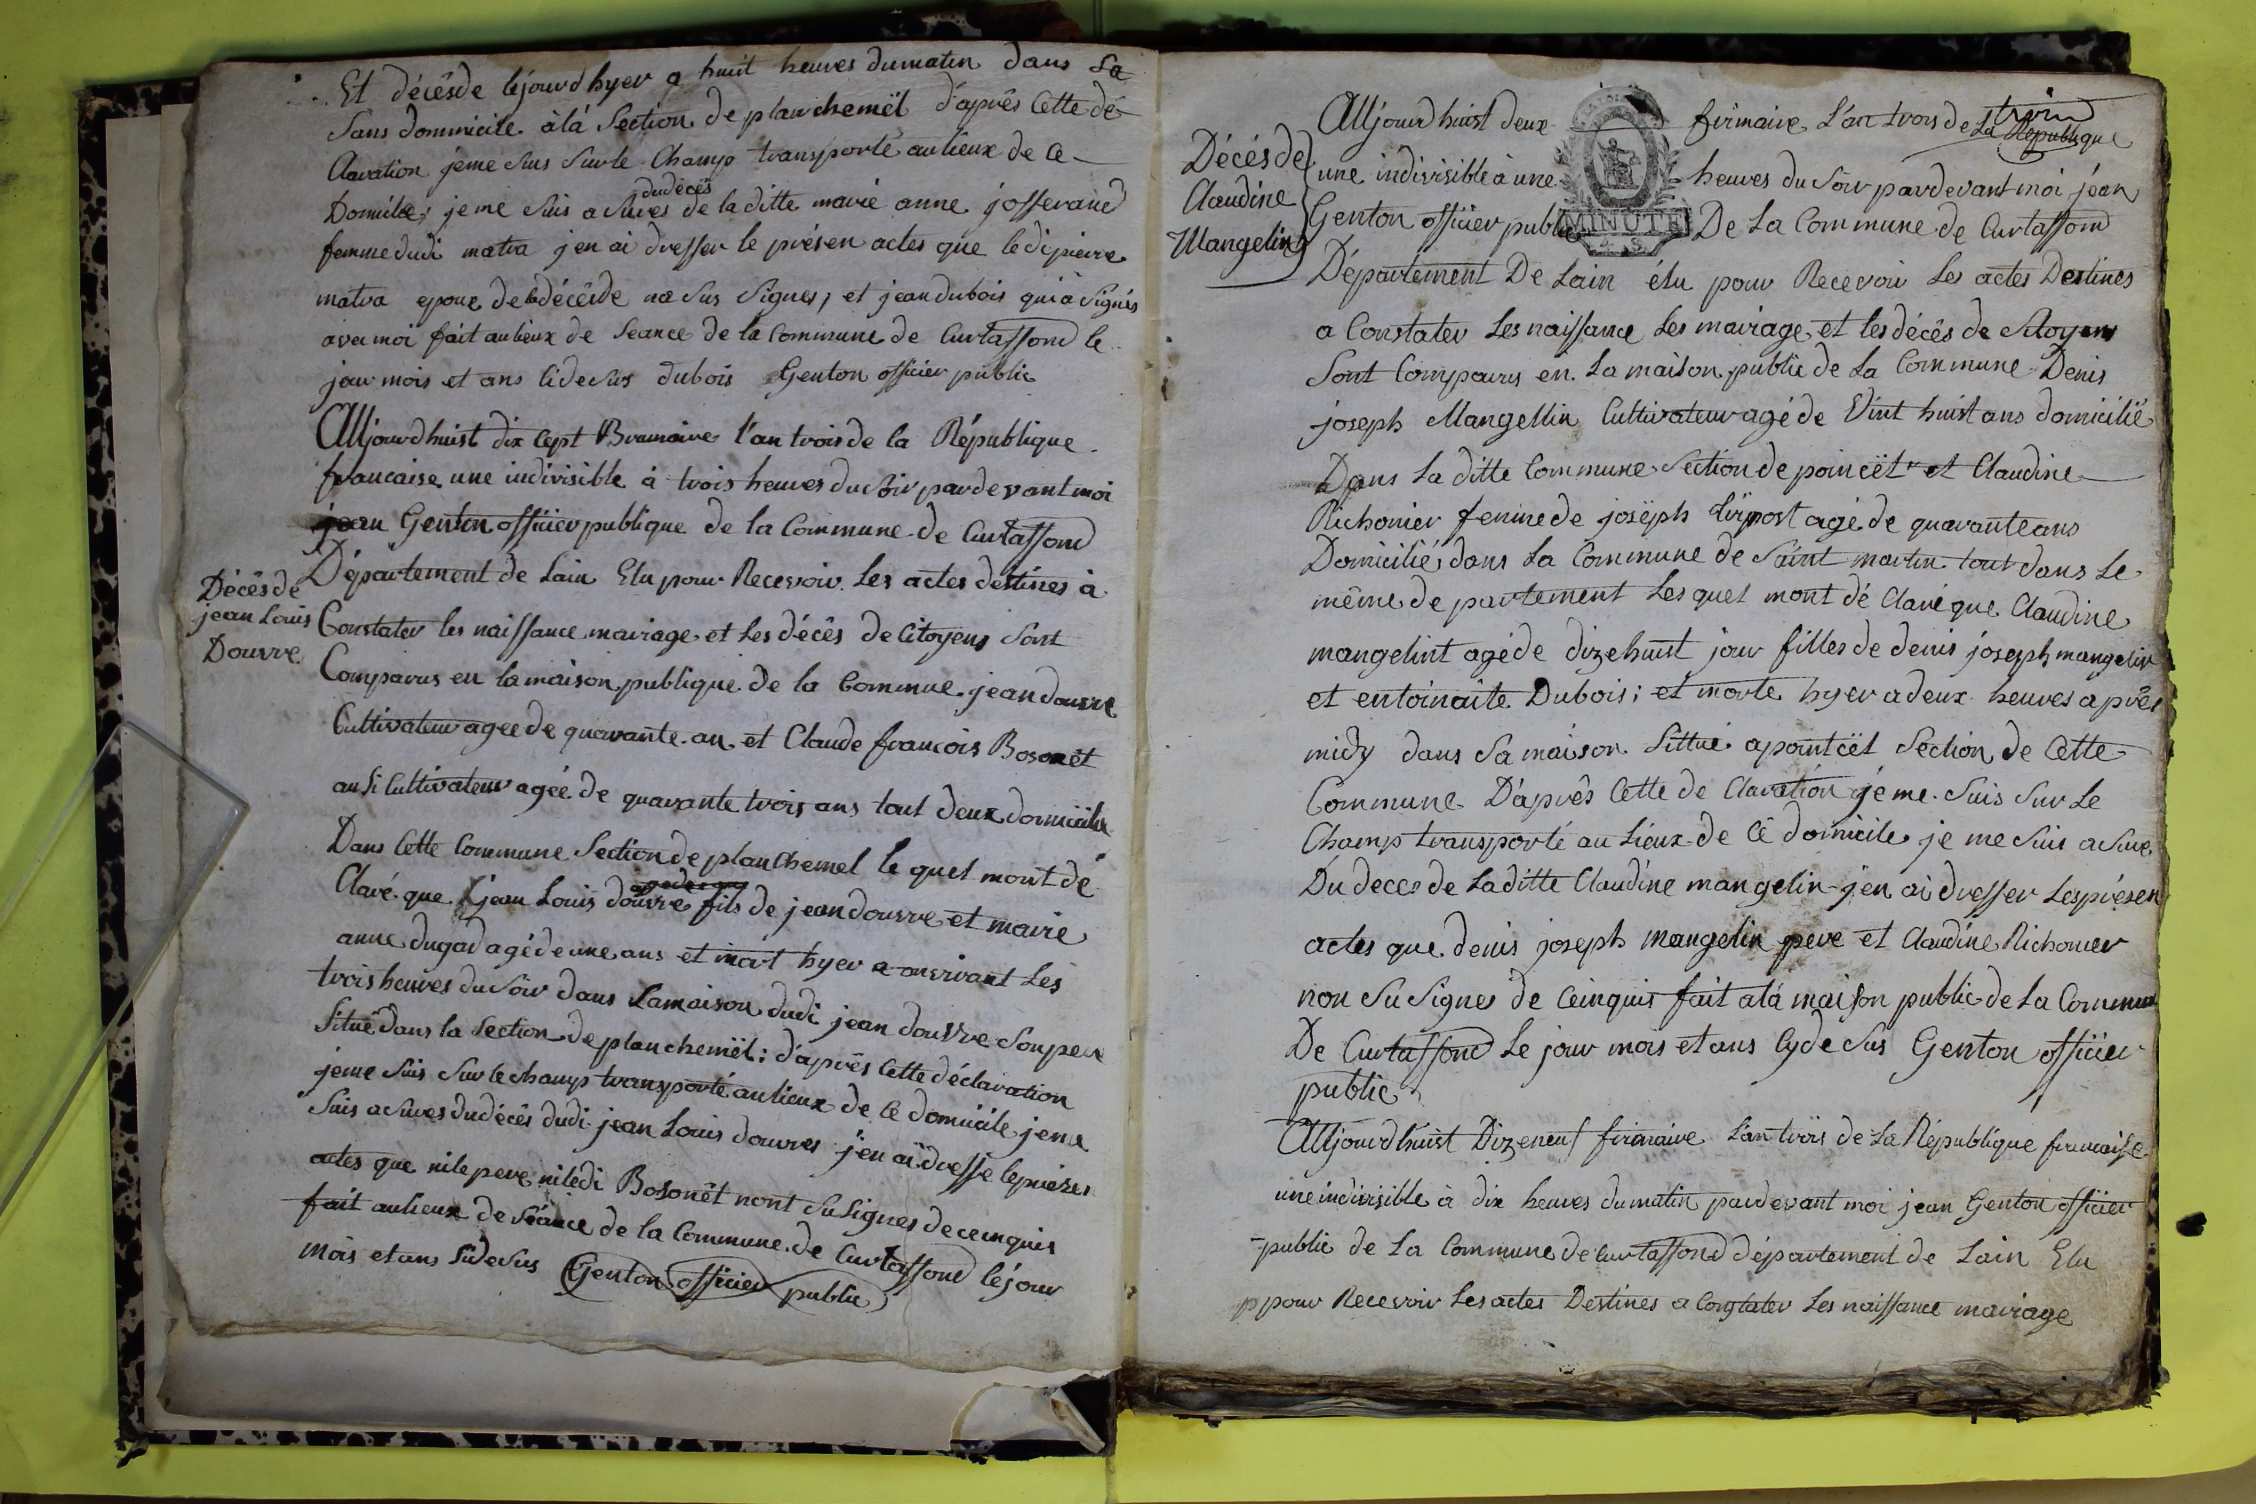 Et décêsde lejourd hyer a huit heures dumatin dans sa
Sans dommicile à lá Section de planchemël d'aprês Cette dé
Claration jeme suis sur le Champ transporté aulieux de ce
Domicile; je me suis asures dudécês de la ditte marie anne josserand
femme dudi matra jen ai dresser le présen actes que le di pierre
matra epoux de la décêsde na sus signes, et jean dubois qui a signés
avec moi fait aulieux de Seance de la Commune de Curtafford le
jour mois et ans ci desus dubois Genton officier public
Aujourdhuist dix Cept Brumaire l'an trois de la République
francaise une indivisible à trois heures du soir par devant moi
jean Genton officier publique de la Commune de Curtaffond
Département de Lain Elu pour Recevoir Les actes destines à
Décês de
jean Louis
Douvre
Constater les naissance mariage et Les décês de Citoyens sont
Comparus en la maison publique de la Commune jean douvre
Cultivateur agée de quarante an et Claude francois Bosonêt
ausi Cultivateur agée de quarante trois ans tout deux domicilié
Dans Cette Commune Section de planchemel le quel mont dé
Claré que jean Louis douvre fils de jean douvre et marie
anne dugad agé de une ans et mort hyer a onvirant Les
trois heures du soir dans Lamaison dudi jean douvre son pere
Situé dans la Section de planchemël; d'aprês Cette déclaration
jeme suis sur le champ transporté aulieux de Ce domicile jeme
suis asures dudécês dudi jean Louis douvres j'en ai dresse le présen
actes que nile pere niledi Bosonêt nont su Signes de ce enquis
fait aulieux de Séance de la Commune de Curtaffond le jour
mois et ans sidesus Genton officier public
Aujourd huist deux firmaire L'an trois de La République
Décês de
Claudine
Mangelin
une indivisible à une heures du soir pardevant moi jean
Genton officier public De La Commune de Curtaffond
MINUTE
Département De Lain élu pour Recevoir Les actes Destines
a Constater Les naissance Les mariage et les décês de Sitoyens
Sont Comparus en La maison public de La Commune Denis
joseph Mangellin Cultivateur agé de Vint huist ans domicilié
Dans La ditte Commune Section de poincët et Claudine
Richonier femme de joséph agé de quarante ans
Domicilié dans La Commune de Saint martin tout dans Le
même departement Lesquel mont dé Claré que Claudine
mangelint agé de dizehuist jour filles de denis joseph mangelin
et entoinaite Dubois; et morte hyer a deux heures aprês
midy dans sa maison Sittué apointcët Section de Cette
Commune D'aprês Cette de Claration je me suis sur Le
Champ transporté au Lieux de Ce domicile je me suis asure
Du deces de Laditte Claudine mangelin jen ai dresser Les présen
actes que denis joseph mangelin pere et Claudine Richonier
non su Signes de Ceinquis fait alá maison public de La Commun
De Curtaffond Le jour mois et ans Cydesus Genton officier
public
Aujourdhuist Dizeneuf firmaire Lan trois de La République francaise
une indivisible à dix heures dumatin pardevant moi jean Genton officier
public de La Commune de Curtaffond département de Lain Elu
ppour Recevoir Les actes Destines a Constater Les naissance mariage